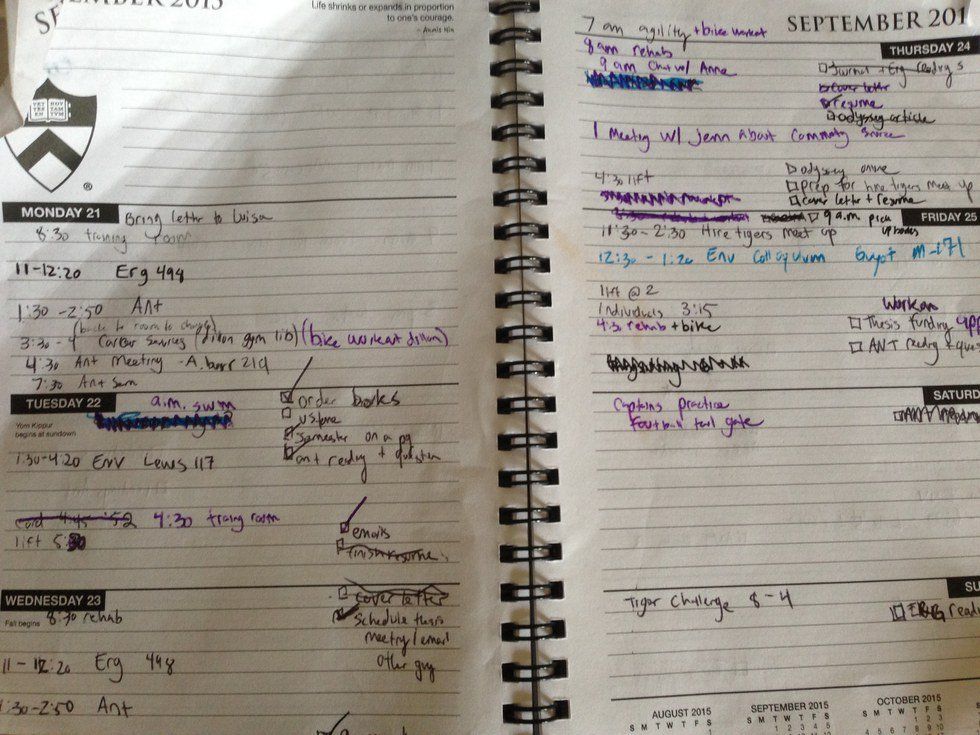 SEPTEMBER 2015
Life shrinks or expands in proportion
to one's courage.
- Anaïs Nin
VET NOV
TES EN TAM TVM
®
MONDAY 21
Bring letter to Luisa
8:30 training room
11-12:20 Erg 498
1:30-2:50 Ant
(back to room to change)
3:30-4 Career Services (dillon gym lib) (bike workout dillon)
4:30 Ant Meeting - A. burr 219
7:30 Ant Sem
TUESDAY 22
Yom Kippur
begins at sundown
a.m. swim
order books
semester on a pg
ant readng + question
1:30-4:20 Env Lewis 117
4:30 traing room
lift 5:30
emails
finish resume
cover letter
WEDNESDAY 23
Fall begins
8:30 rehab
Schedule thesis
meetng / email
other guy
11-12:20 Erg 498
1:30-2:50 Ant
SEPTEMBER 201
THURSDAY 24
7 am agility + bike workout
8am rehab
9am Chat w/ Anne
Journal + Erg readng s
cover letter
resume
odyssey article
1 Meeting w/ Jenn About Commnty Service
4:30 lift
odyssey online
prep for hire tigers meet up
cover letter + resume
9 a.m. pick
up books
FRIDAY 25
11:30-2:30 Hire tigers meet up
12:30-1:20 Env Colloquium Guyot M-171
lift @ 2
Individuals 3:15
4:3 rehab + bike
Work on
Thesis Funding app
ANT readng + ques
SATURD
Captains practice
Football tail gate
SU
Tiger Challenge 8-4
ERG readi
AUGUST 2015
S M T W T F S
SEPTEMBER 2015
S M T W T F S
1 2 3 4 5
OCTOBER 2015
S M T W T F S
1 2 3